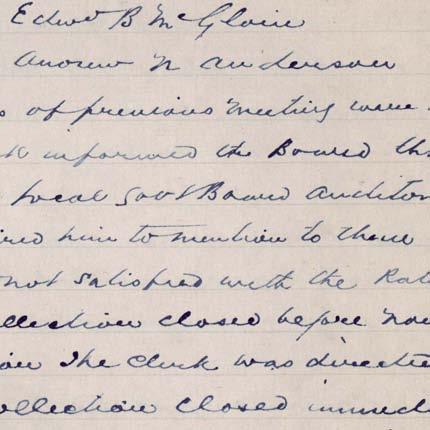 Edwd B McGloin
Andrew N Anderson
s of previous meeting were
k informed the Board th
Local Govt Board Auditor
ired him to mention to these
not satisfied with the Rate
llection closed before Nov
The Clerk was directe
ollection closed immed